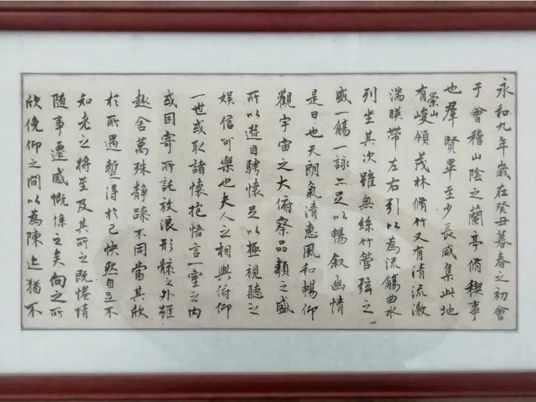 永和九年歲在癸丑暮春之初會
于會稽山陰之蘭亭脩稧事
也羣賢畢至少長咸集此地
有崇山峻領茂林脩竹又有清流激
湍暎帶左右引以為流觴曲水
列坐其次雖無絲竹管弦之
盛一觴一詠亦足以暢叙幽情
是日也天朗氣清惠風和暢仰
觀宇宙之大俯察品類之盛
所以遊目騁懷足以極視聽之
娛信可樂也夫人之相與俯仰
一世或取諸懷抱悟言一室之内
或因寄所託放浪形骸之外雖
趣舍萬殊静躁不同當其欣
於所遇暫得於己快然自足不
知老之將至及其所之既惓情
隨事遷感慨係之矣向之所
欣俛仰之間以為陳迹猶不